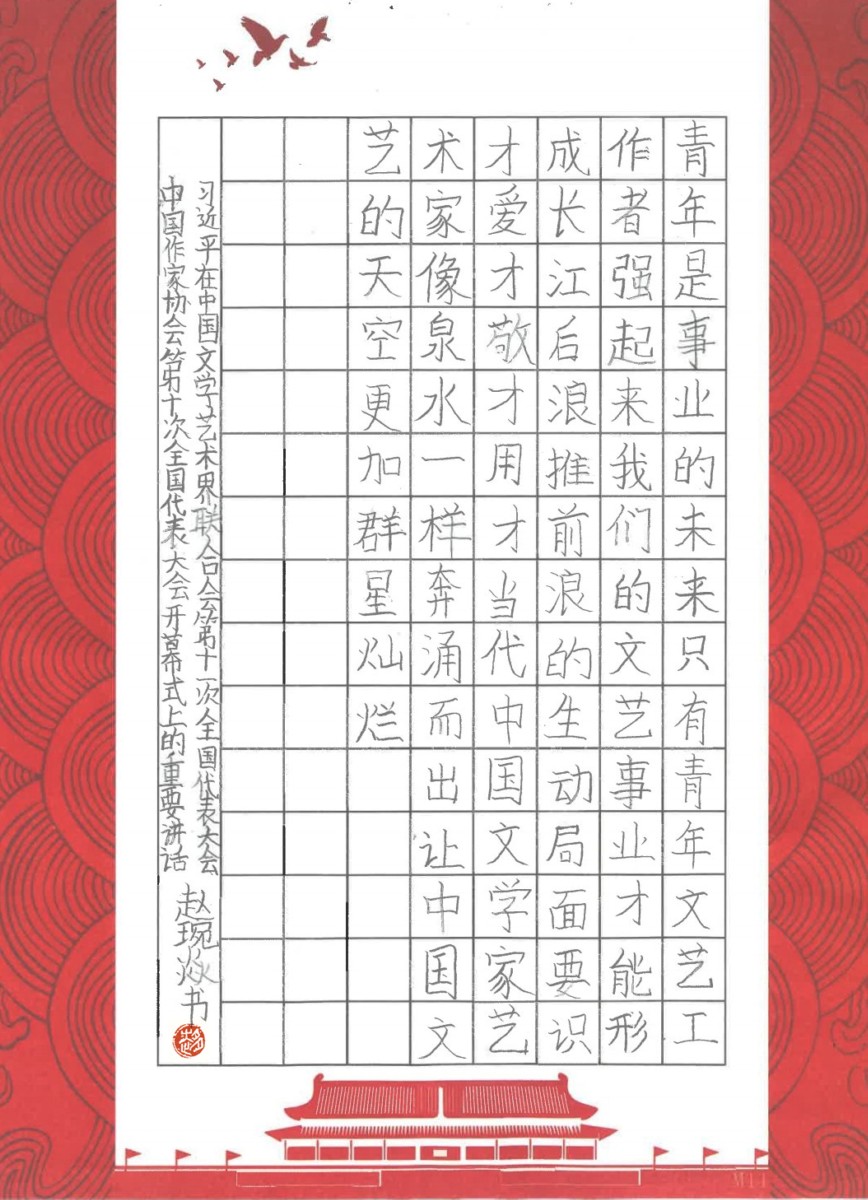 青年是事业的未来只有青年文艺工
作者强起来我们的文艺事业才能形
成长江后浪推前浪的生动局面要识
才爱才敬才用才当代中国文学家艺
术家像泉水一样奔涌而出让中国文
艺的天空更加群星灿烂
习近平在中国文学艺术界联合会第十一次全国代表大会
中国作家协会第十次全国代表大会开幕式上的重要讲话
赵琬焱书